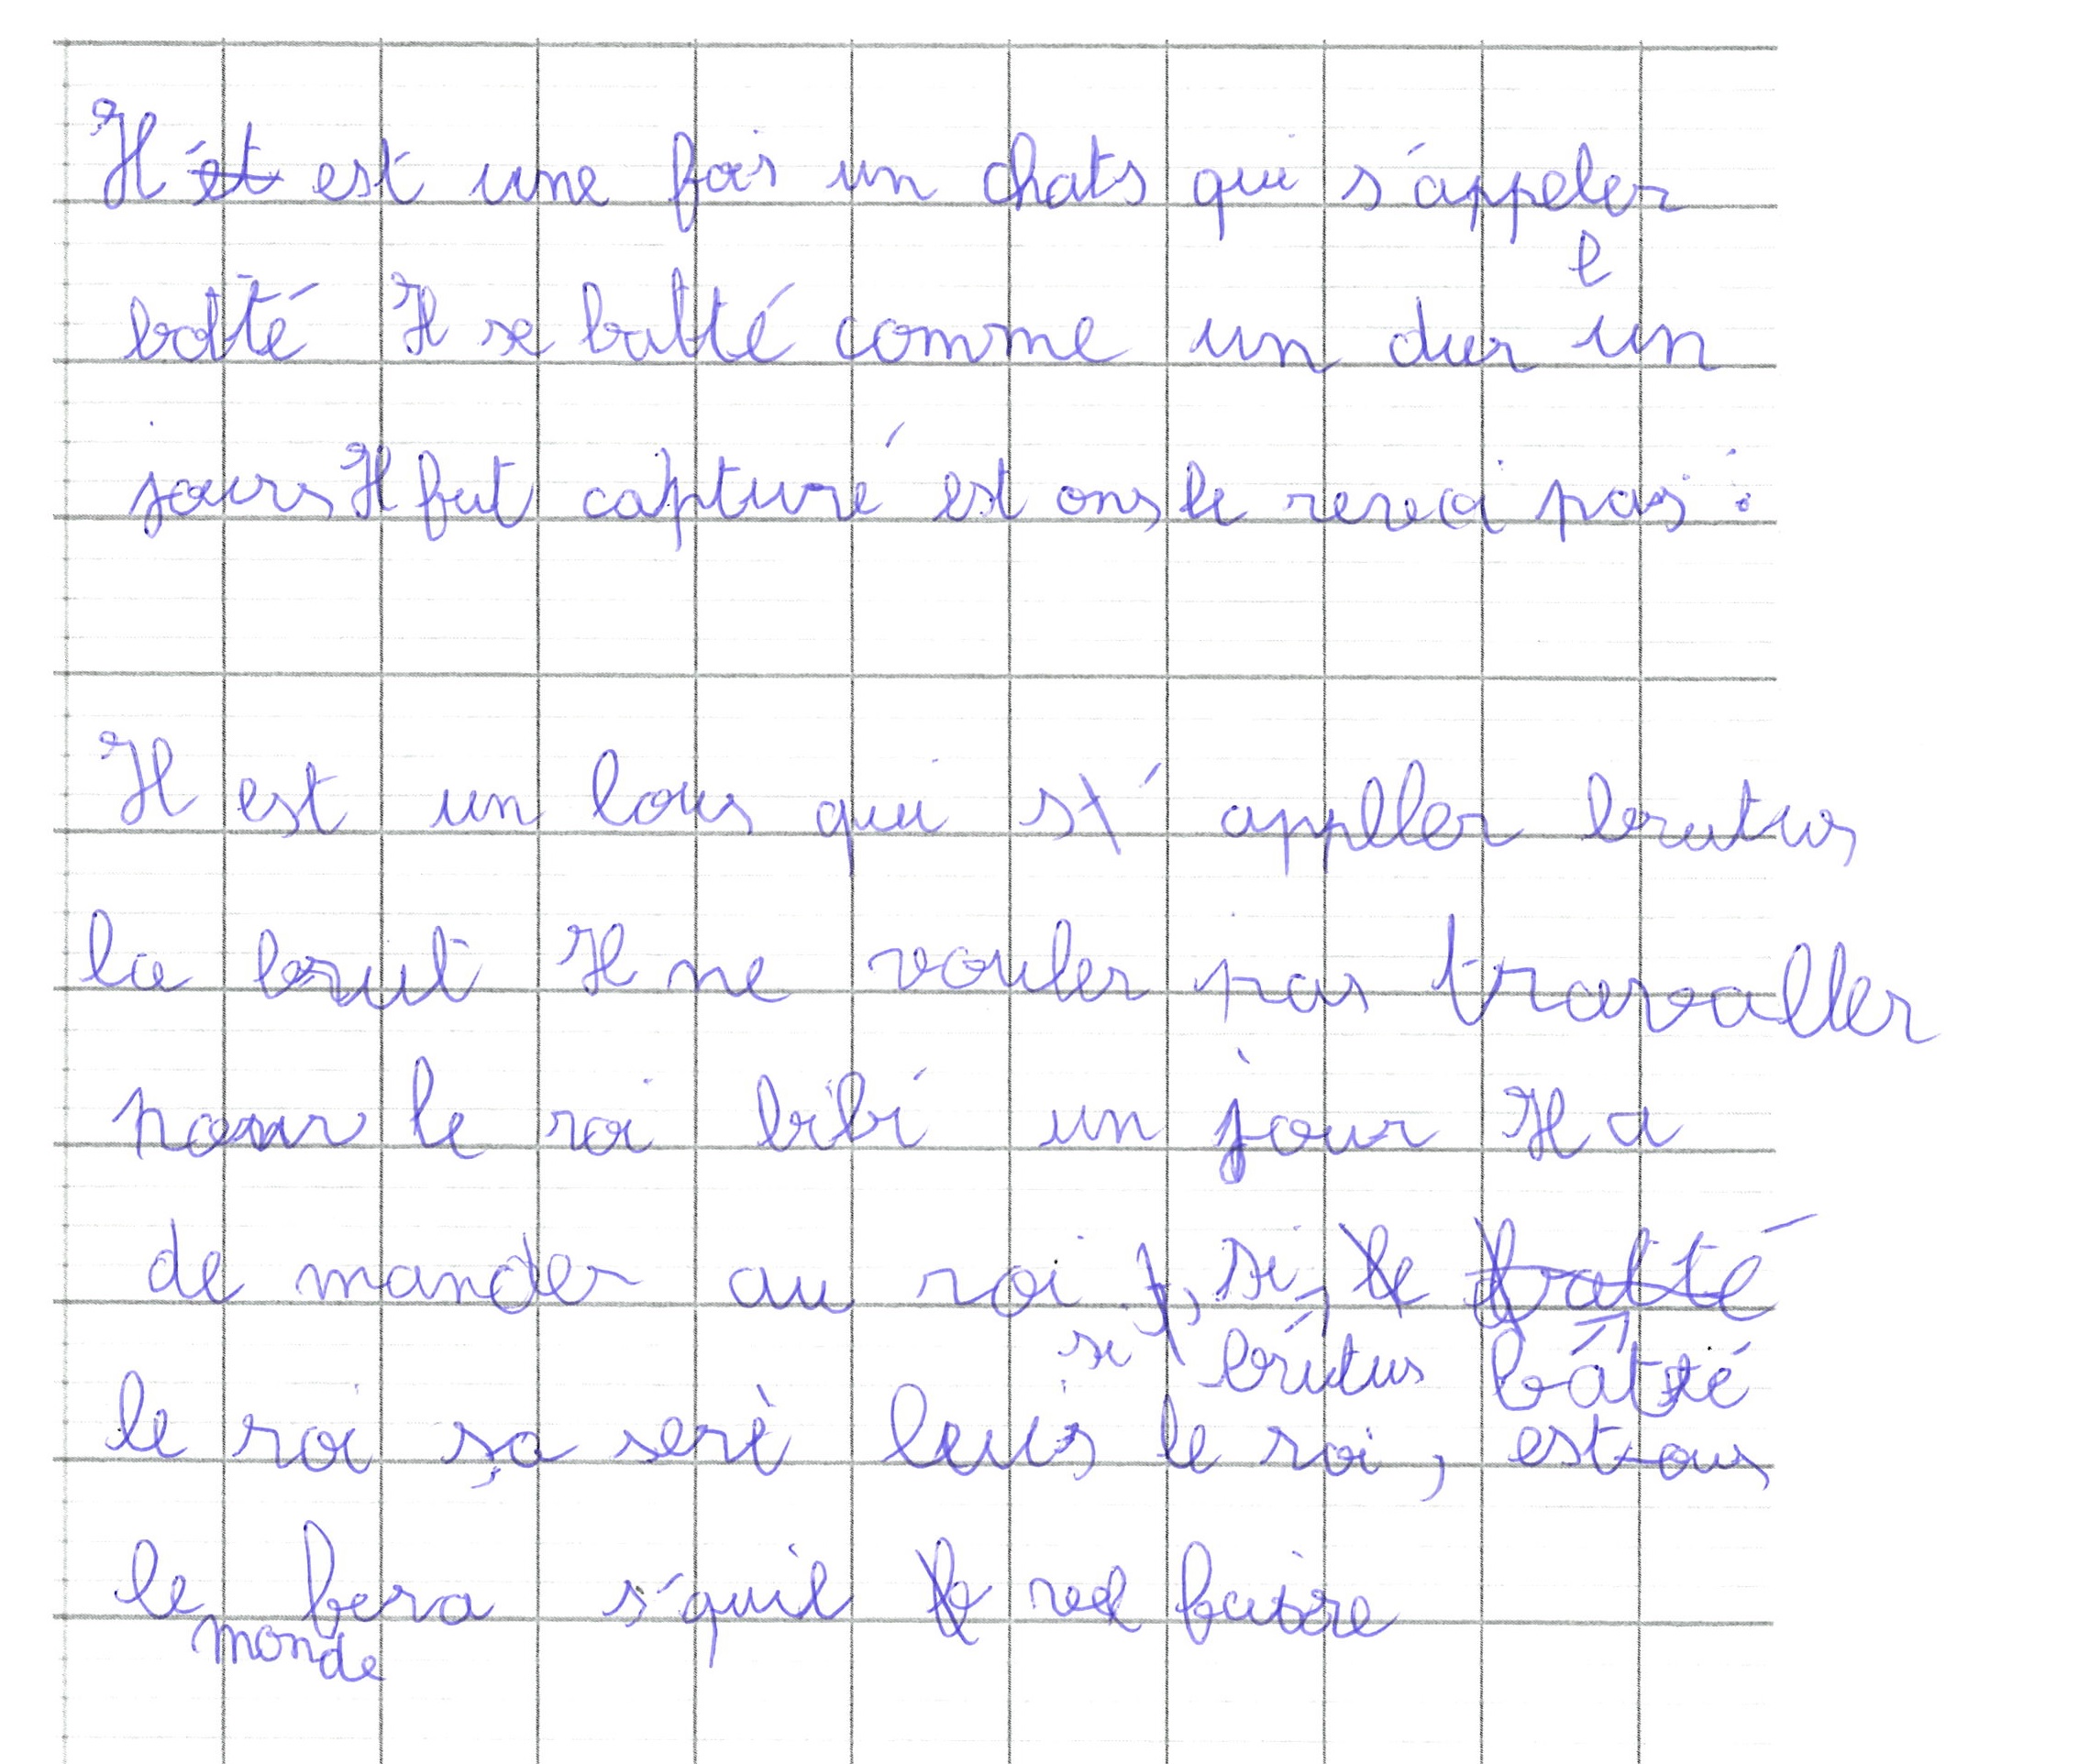 Il ét est une fois un chats qui s'appeler
botté Il se batté comme un dur un
jours Il fut capturé est ons le revoi pas :
Il est un lous qui s' appller brutus
la brut Il ne vouler pas travaller
pour le roi bibi un jour Il a
de mander au roi , si, le batté
si brutus bátté
le roi sa serè luis le roi, est ous
le fera s'quil le vel faire
monde